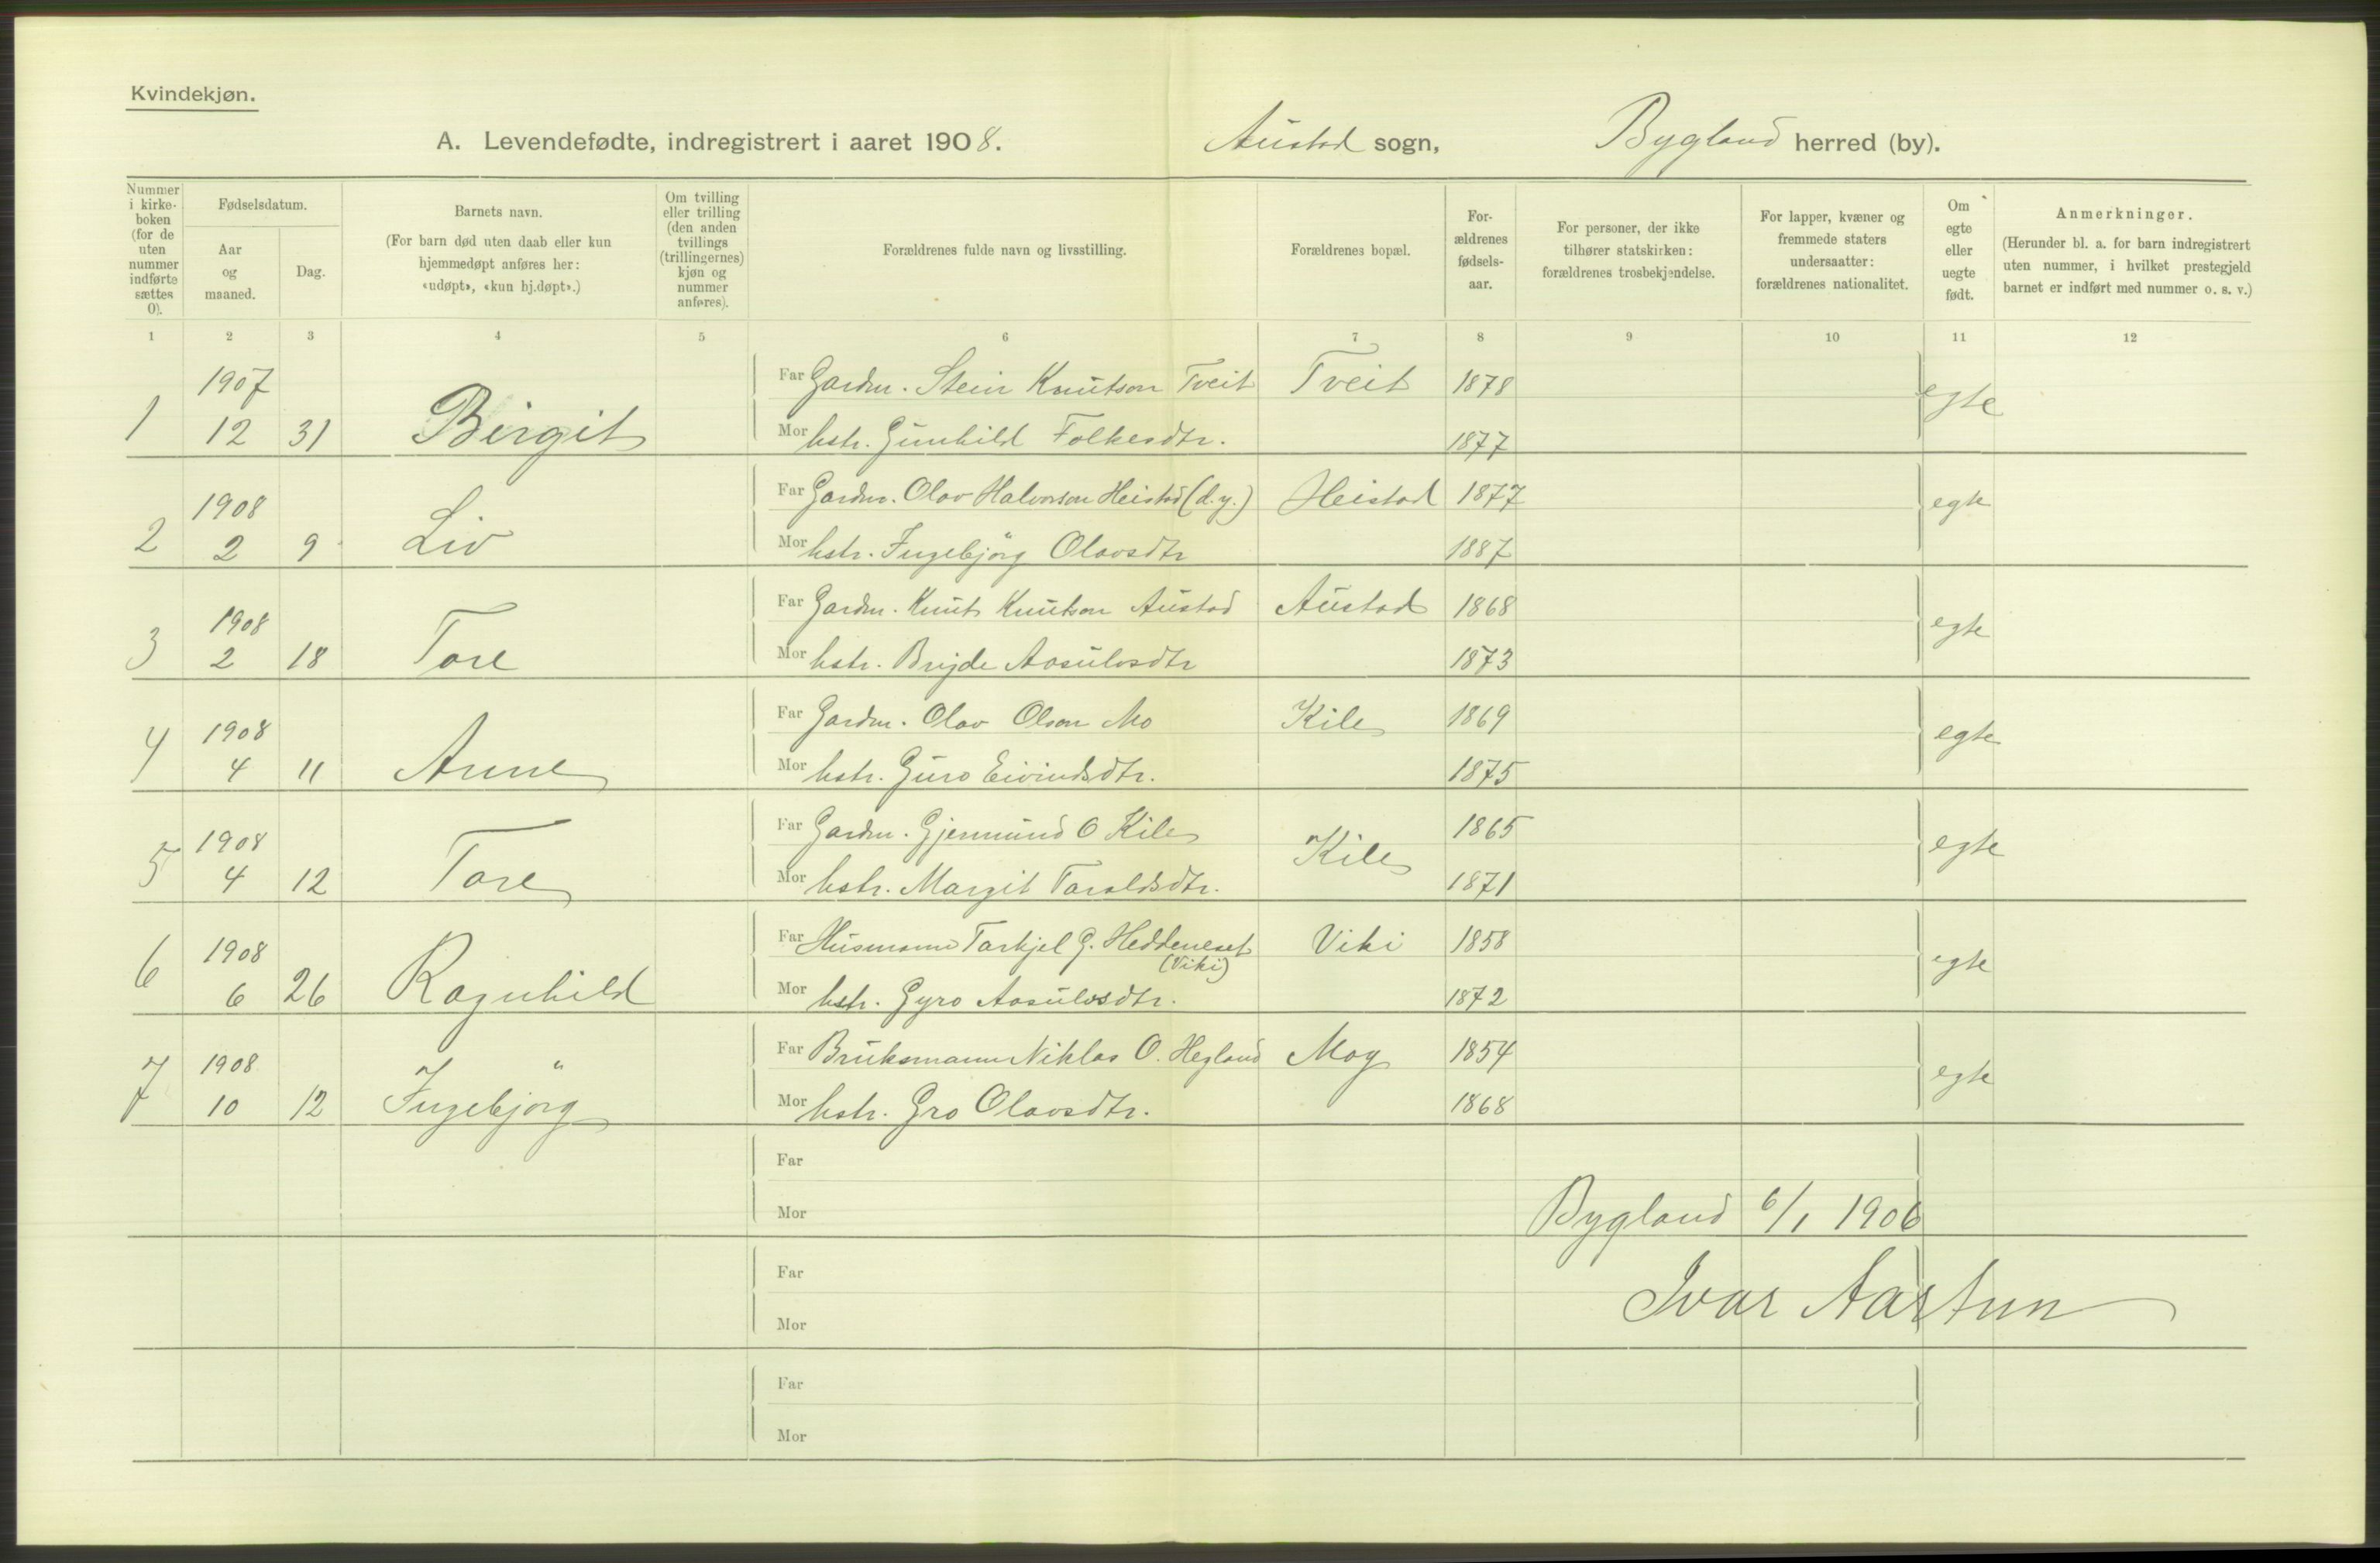 Kvindekjøn.
A. Levendefødte, indregistrert i aaret 1908. Austad sogn, Bygland herred (by).
Nummer i kirke-boken (for de uten nummer indførte sættes 0).
Fødselsdatum.
Aar og maaned.
Dag.
Barnets navn.
(For barn død uten daab eller kun hjemmedøpt anføres her: «udøpt», «kun hj.døpt».)
Om tvilling eller trilling (den anden tvillings (trillingernes) kjøn og nummer anføres).
Forældrenes fulde navn og livsstilling.
Forældrenes bopæl.
For-ældrenes fødsels-aar.
For personer, der ikke tilhører statskirken: forældrenes trosbekjendelse.
For lapper, kvæner og fremmede staters undersaatter: forældrenes nationalitet.
Om egte eller uegte født.
Anmerkninger.
(Herunder bl. a. for barn indregistrert uten nummer, i hvilket prestegjeld barnet er indført med nummer o. s. v.)
1 2 3 4 5 6 7 8 9 10 11 12
1907 Far Gardm. Stein Knutson Tveit Tveit 1878 egte
1 12 31 Birgit Mor hstr. Gunhild Folkesdtr. 1877
1908 Far Gardm. Olav Halvorson Heistad (d.y.) Heistad 1877 egte
2 2 9 Liv Mor hstr. Ingebjörg Olavsdtr 1887
1908 Far Gardm. Knut Knutson Austad Austad 1868 egte
3 2 18 Tore Mor hstr. Brijde Aasulvsdtr 1873
1908 Far Gardm. Olav Olson Mo Kile 1869 egte
4 4 11 Anne Mor hstr. Guro Eivindsdtr. 1875
1908 Far Gardm. Gjermund O Kile Kile 1865 egte
5 4 12 Tore Mor hstr. Margit Taraldsdtr. 1871
1908 Far Husmann Tarkjel G. Heddeneset (Viki) Viki 1858 egte
6 6 26 Ragnhild Mor hstr. Gyro Aasulvsdtr. 1872
1908 Far Bruksmann Niklas O. Hegland Moy 1854 egte
7 10 12 Ingebjörg Mor hstr. Gro Olavsdtr. 1868
Far
Mor Bygland 6/1 1906
Far
Mor Ivar Aartun
Far
Mor